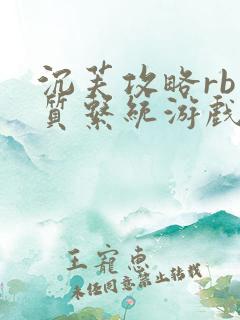 沉芙攻略rb
质系统游戏
王宠惠
未经同意禁止转载